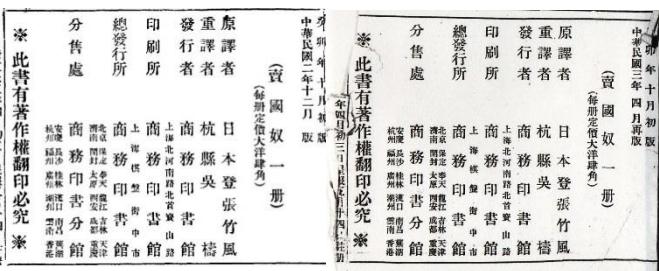 癸卯年十月初版
中華民國二年十二月 版
(賣國奴一册)
(每册定價大洋肆角)
原譯者 日本登張竹風
重譯者 杭縣吳檮
發行者 商務印書館
上海北河南路北首寶山路
印刷所 商務印書館
上海棋盤街中市
總發行所 商務印書館
北京保定奉天龍江吉林天津
濟南開封太原西安成都重慶
分售處 商務印書分館
安慶長沙桂林漢口南昌蕪湖
杭州福州廣州潮州雲南香港
※此書有著作權翻印必究※
卯年十月初版
中華民國三年四月再版
(賣國奴一册)
(每册定價大洋肆角)
原譯者 日本登張竹風
重譯者 杭縣吳檮
發行者 商務印書館
上海北河南路北首寶山路
印刷所 商務印書館
上海棋盤街中市
總發行所 商務印書館
北京保定奉天龍江吉林天津
濟南開封太原西安成都重慶
分售處 商務印書分館
安慶長沙桂林漢口南昌蕪湖
杭州福州廣州潮州雲南香港
※此書有著作權翻印必究※